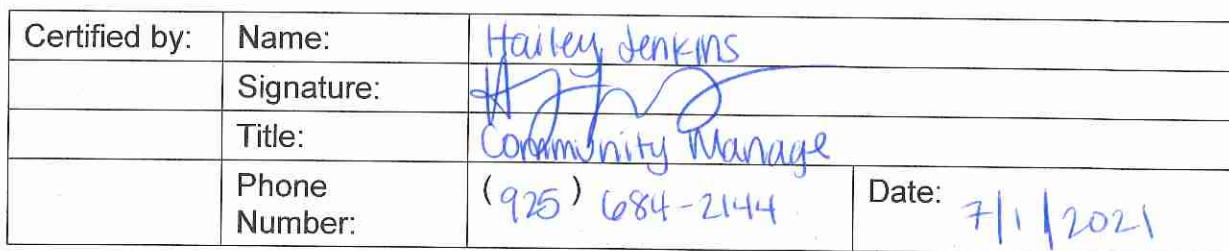 Certified by: Name: Hailey Jenkins
Signature:
Title: Community Manage
Phone Number: (925) 684-2144 Date: 7/1/2021